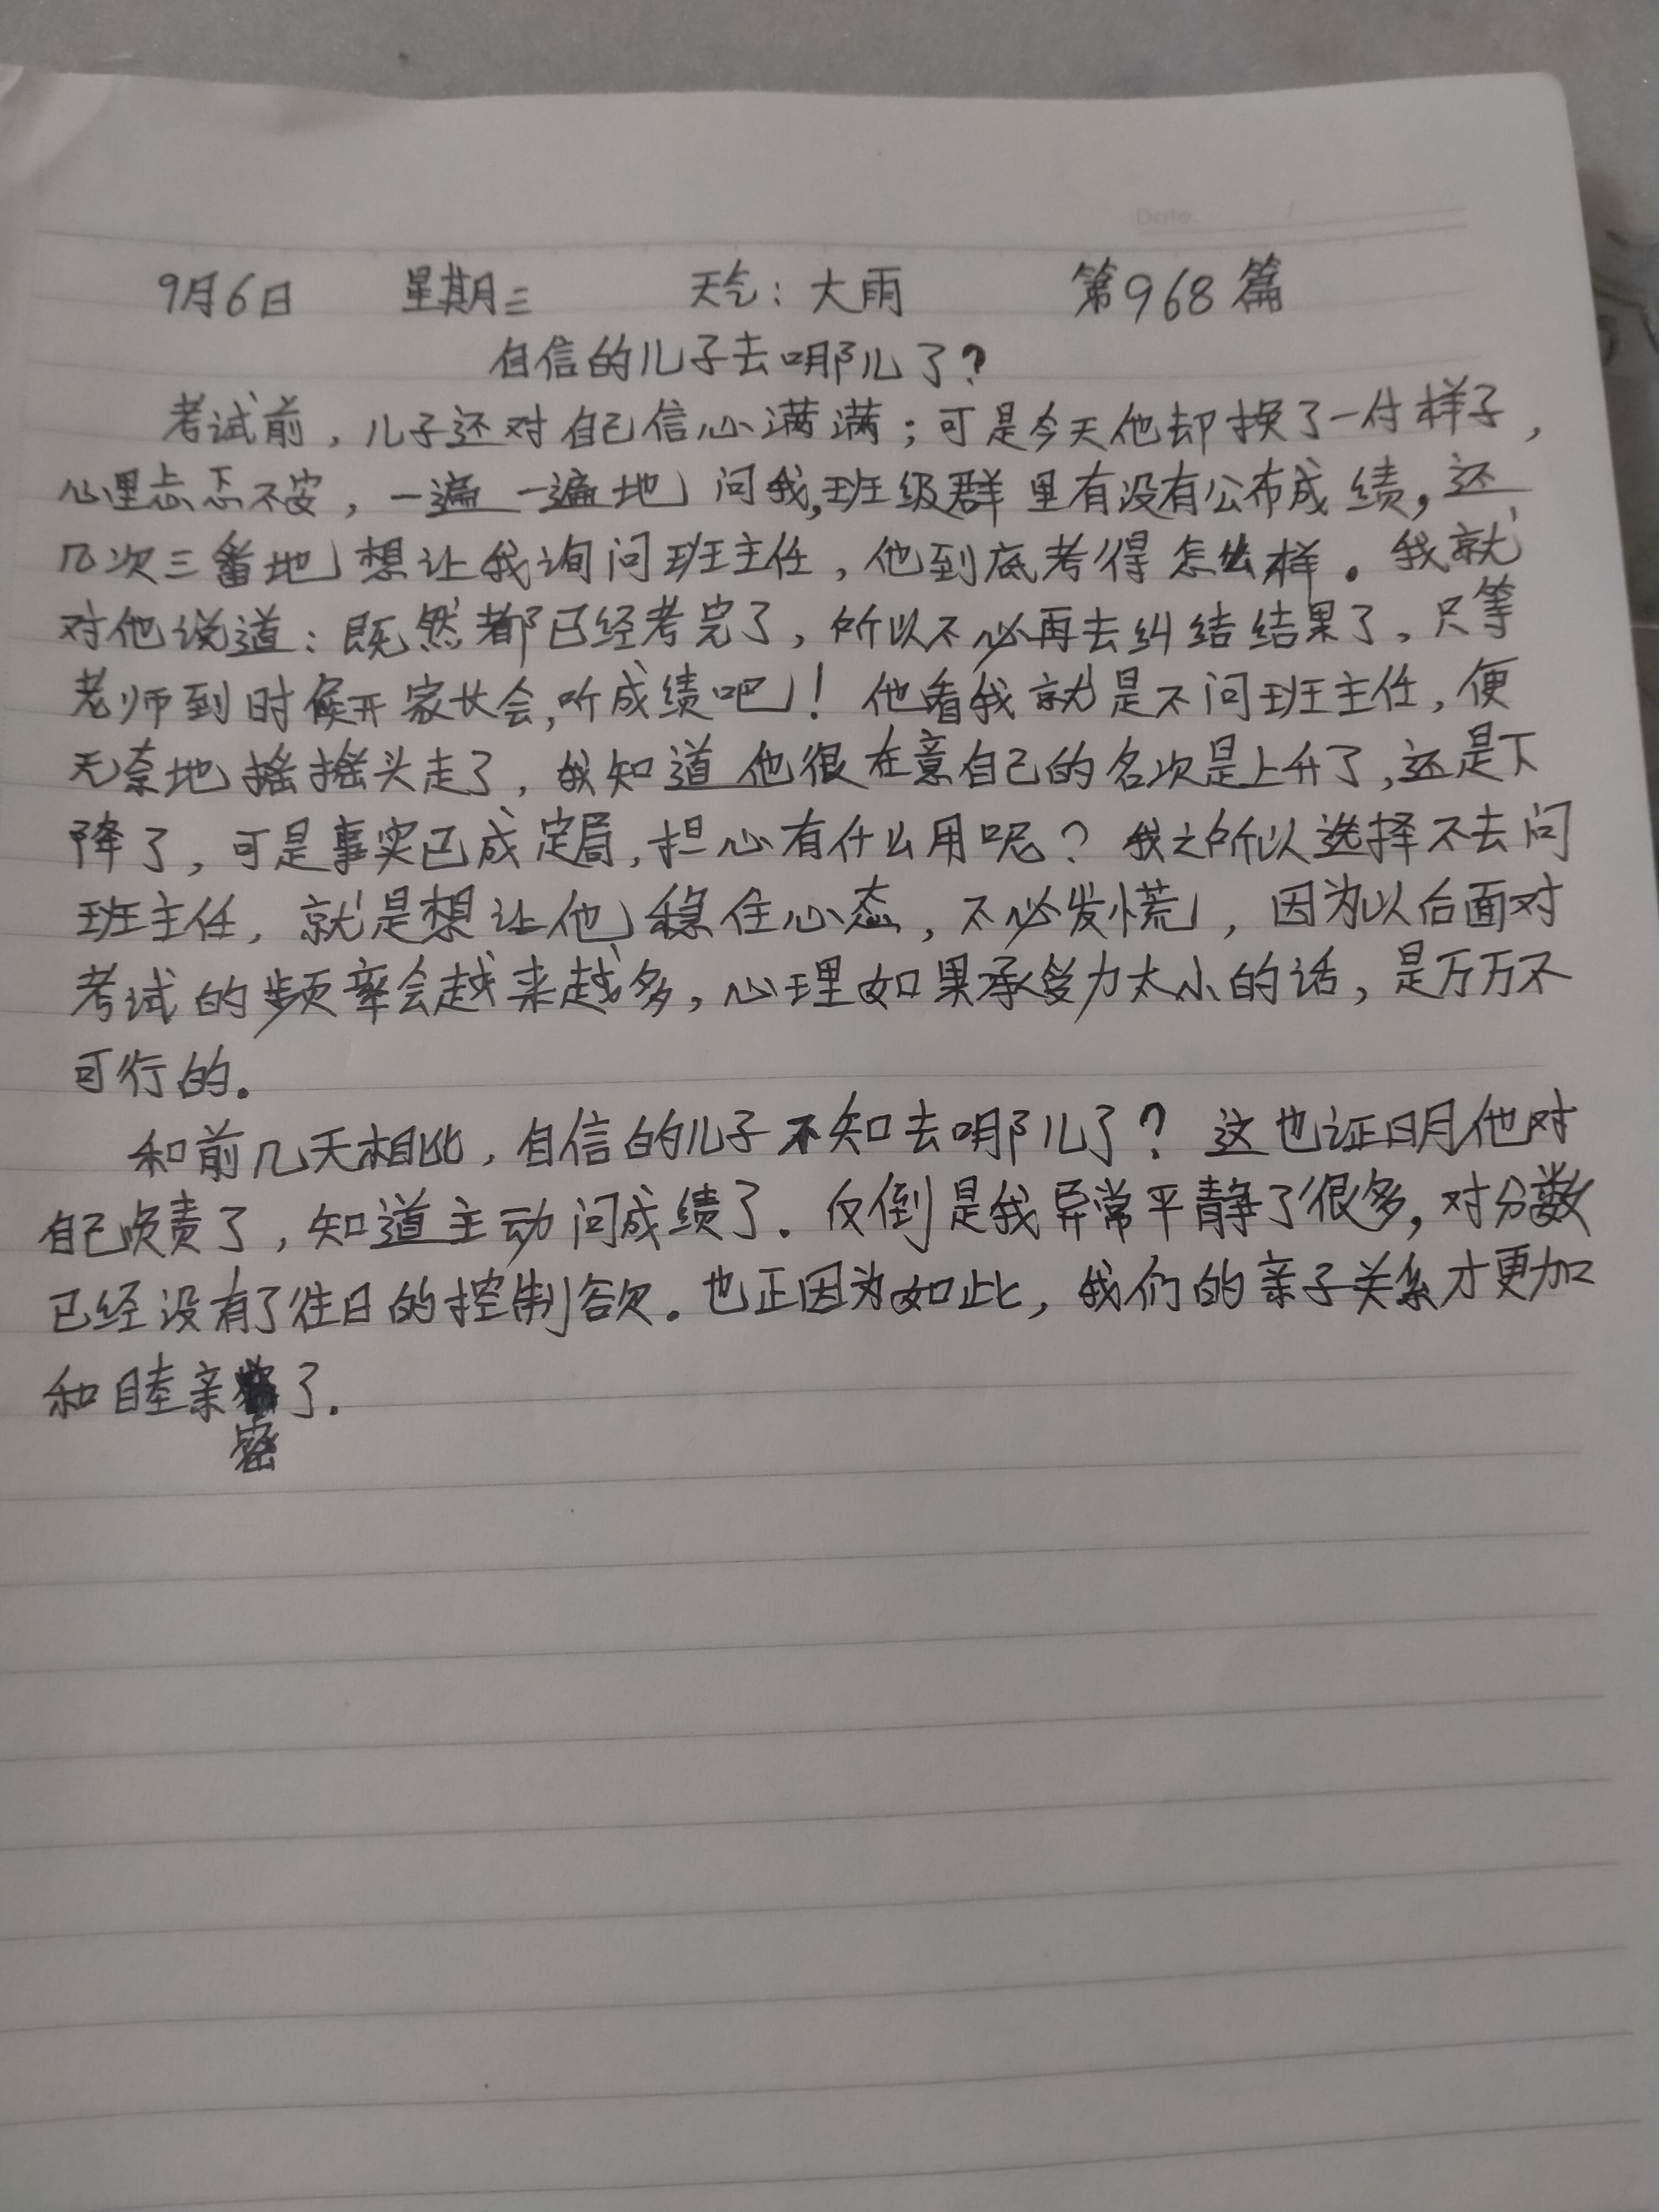 Date. /
9月6日 星期三 天气：大雨 第968篇
自信的儿子去哪儿了？
考试前，儿子还对自己信心满满；可是今天他却换了一付样子，
心里忐忑不安，一遍一遍地问我，班级群里有没有公布成绩，还
几次三番地想让我询问班主任，他到底考得怎么样。我就
对他说道：既然都已经考完了，所以不必再去纠结结果了。只等
老师到时候开家长会，听成绩吧！他看我就是不问班主任，便
无奈地摇摇头走了，我知道他很在意自己的名次是上升了，还是下
降了，可是事实已成定局，担心有什么用呢？我之所以选择不去问
班主任，就是想让他稳住心态，不必发慌，因为以后面对
考试的频率会越来越多，心理如果承受力太小的话，是万万不
可行的。
和前几天相比，自信的儿子不知去哪儿了？这也证明他对
自己负责了，知道主动问成绩了。反倒是我异常平静了很多，对分数
已经没有了往日的控制欲。也正因为如此，我们的亲子关系才更加
和睦亲密了。